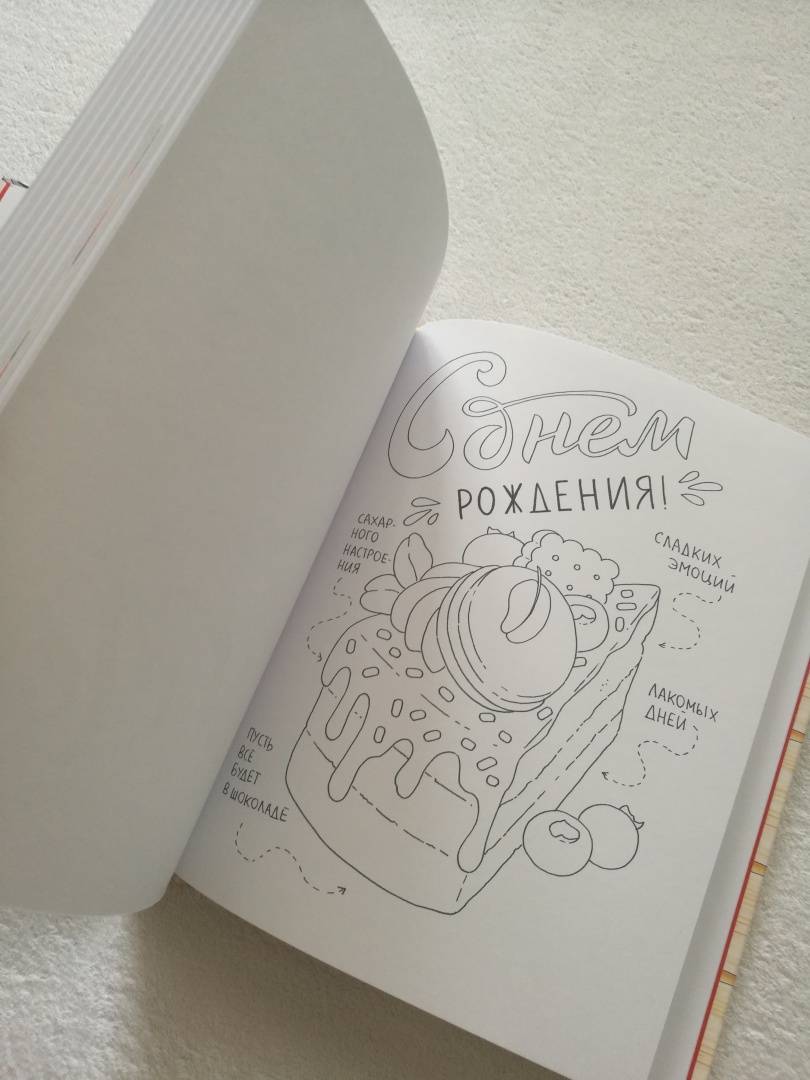 С днем
РОЖДЕНИЯ!
САХАР-
НОГО
НАСТРОЕ-
НИЯ
СЛАДКИХ
ЭМОЦИЙ
ЛАКОМЫХ
ДНЕЙ
ПУСТЬ
ВСЕ
БУДЕТ
В ШОКОЛАДЕ